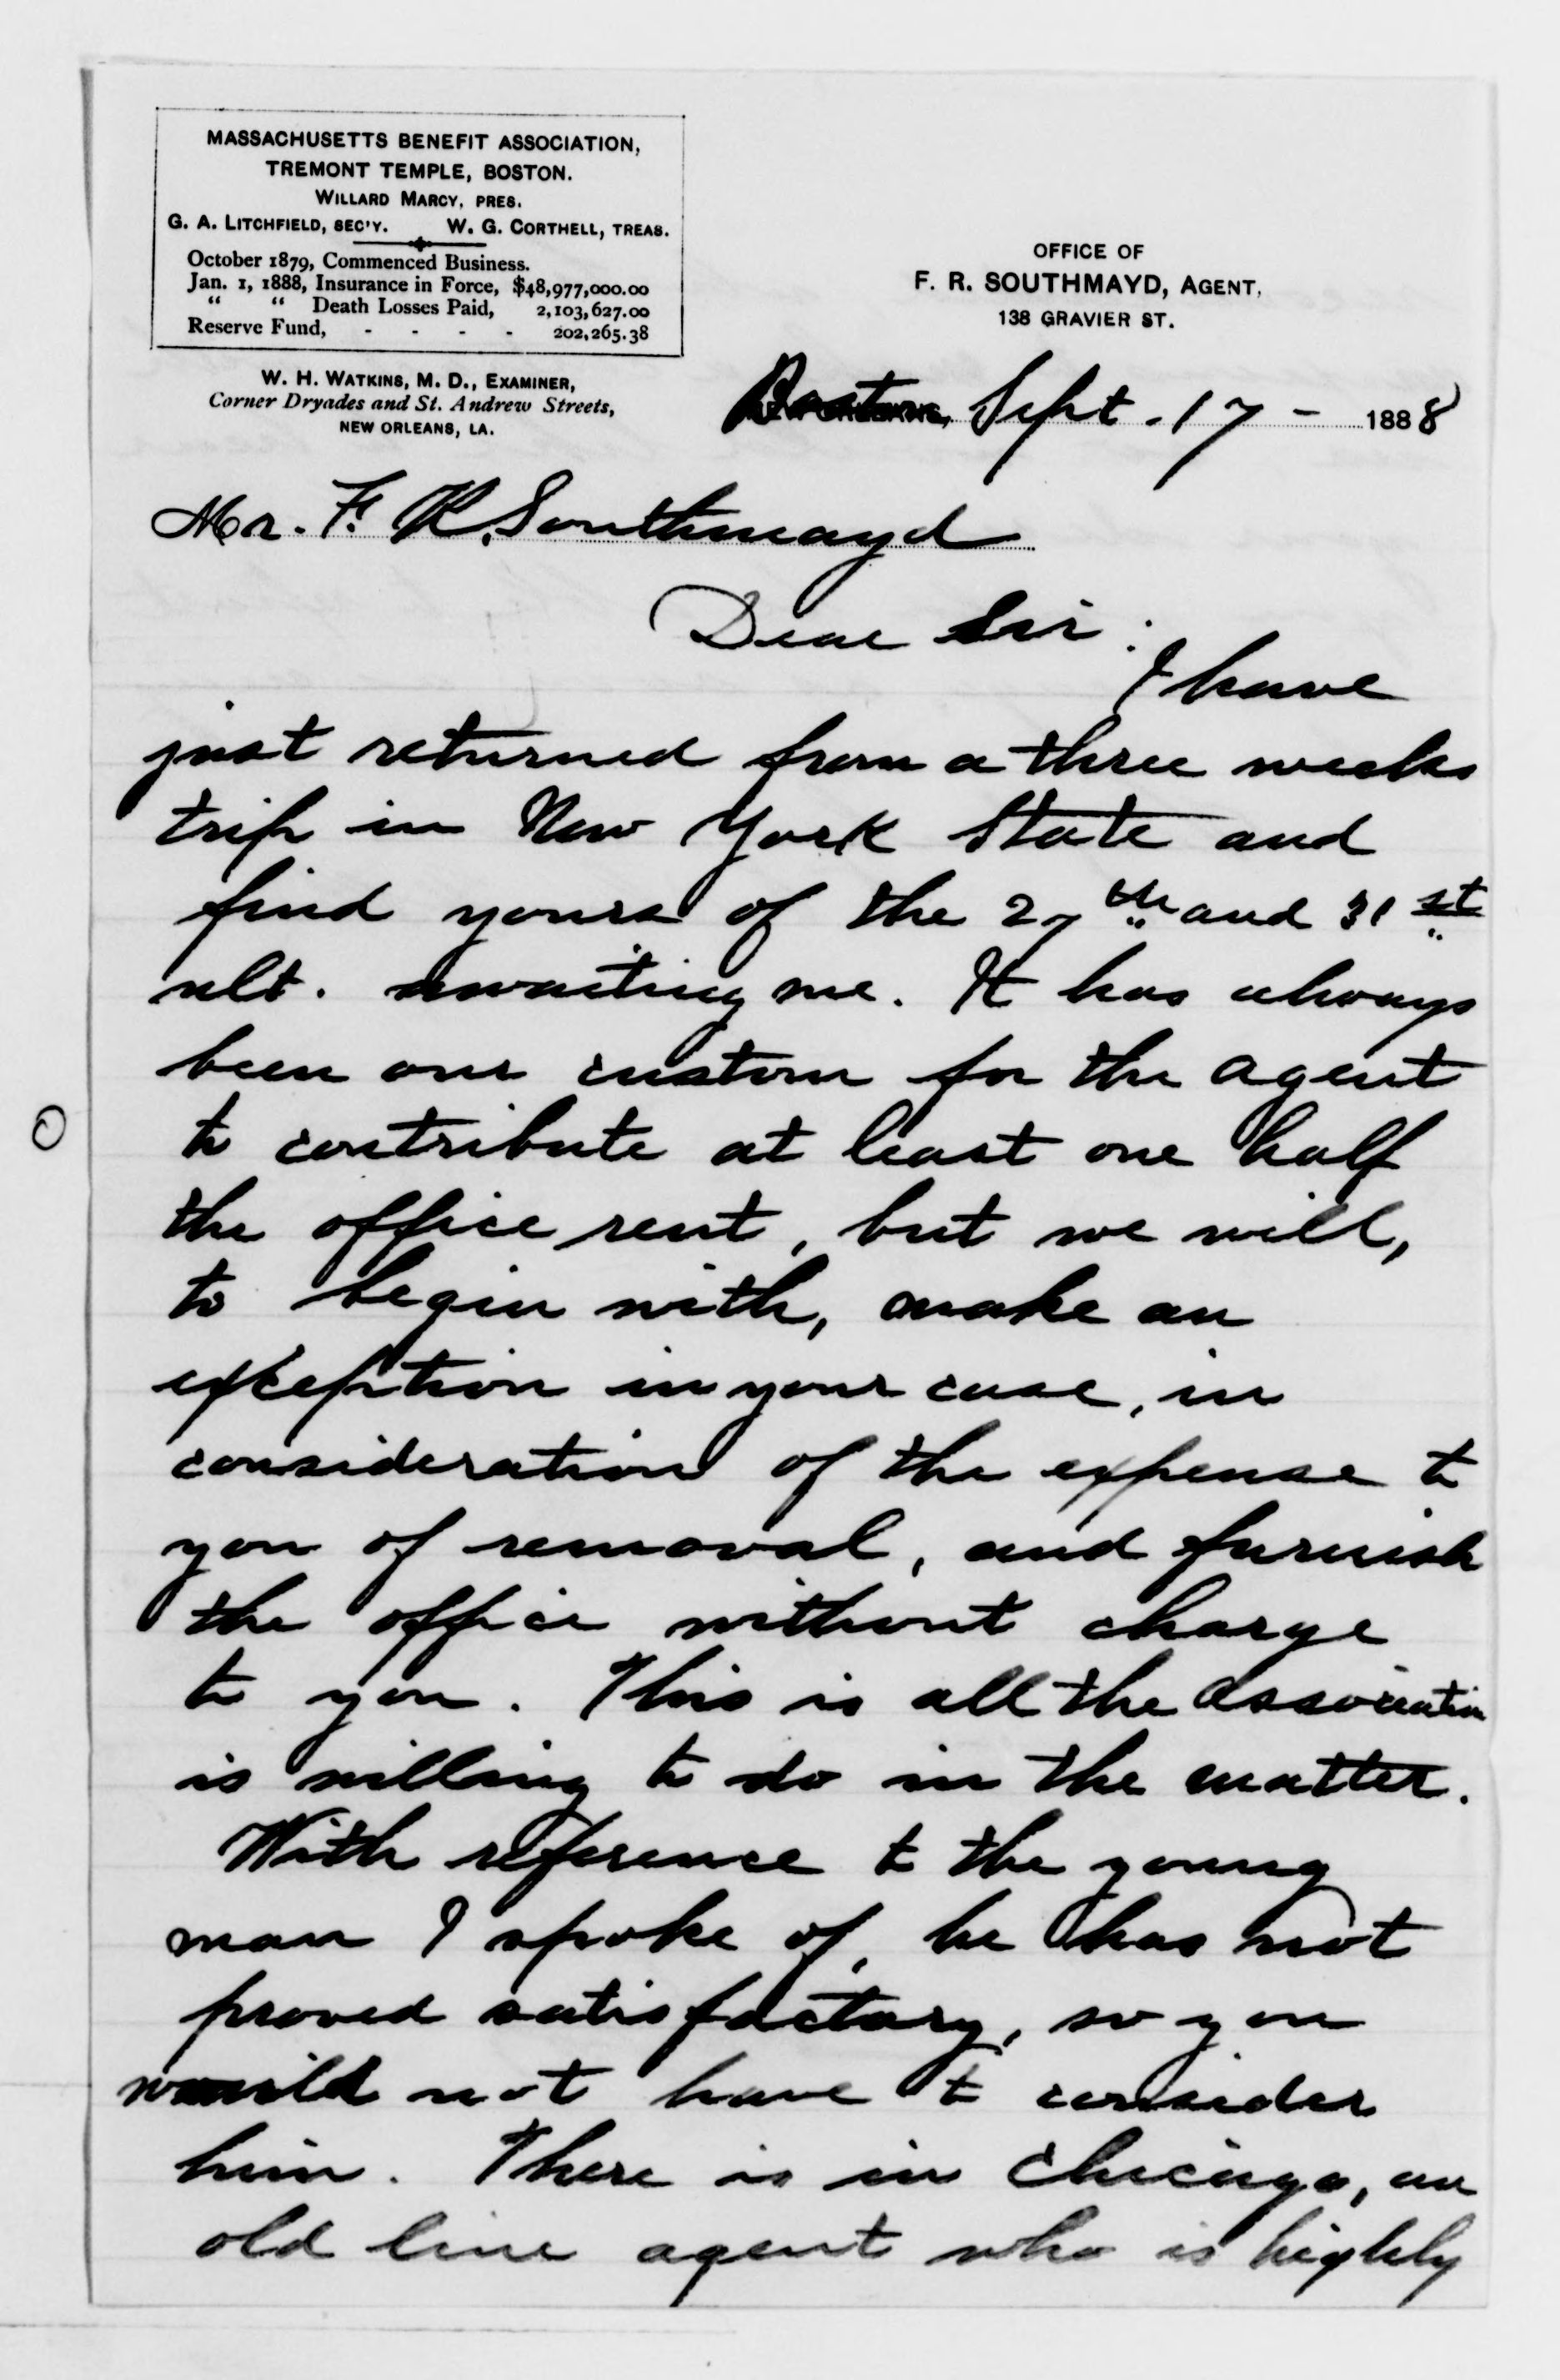 MASSACHUSETTS BENEFIT ASSOCIATION,
TREMONT TEMPLE, BOSTON.
WILLARD MARCY, PRES.
G. A. LITCHFIELD, SEC'Y. W. G. CORTHELL, TREAS.
October 1879, Commenced Business.
Jan. 1, 1888, Insurance in Force, $48,977,000.00
" " Death Losses Paid, 2,103,627.00
Reserve Fund, - - - - 202,265.38
W. H. WATKINS, M. D., EXAMINER,
Corner Dryades and St. Andrew Streets,
NEW ORLEANS, LA.
OFFICE OF
F. R. SOUTHMAYD, AGENT,
138 GRAVIER ST.
Boston, Sept. 17 - 1888
Mr. F. R. Southmayd
Dear Sir:
I have
just returned from a three weeks
trip in New York State and
find yours of the 27th and 31st
ult. awaiting me. It has always
been our custom for the agent
to contribute at least one half
the office rent, but we will,
to begin with, make an
exception in your case, in
consideration of the expense to
you of removal, and furnish
the office without charge
to you. This is all the Association
is willing to do in the matter.
With reference to the young
man I spoke of, he has not
proved satisfactory, so you
would not have to consider
him. There is in Chicago, an
old line agent who is highly